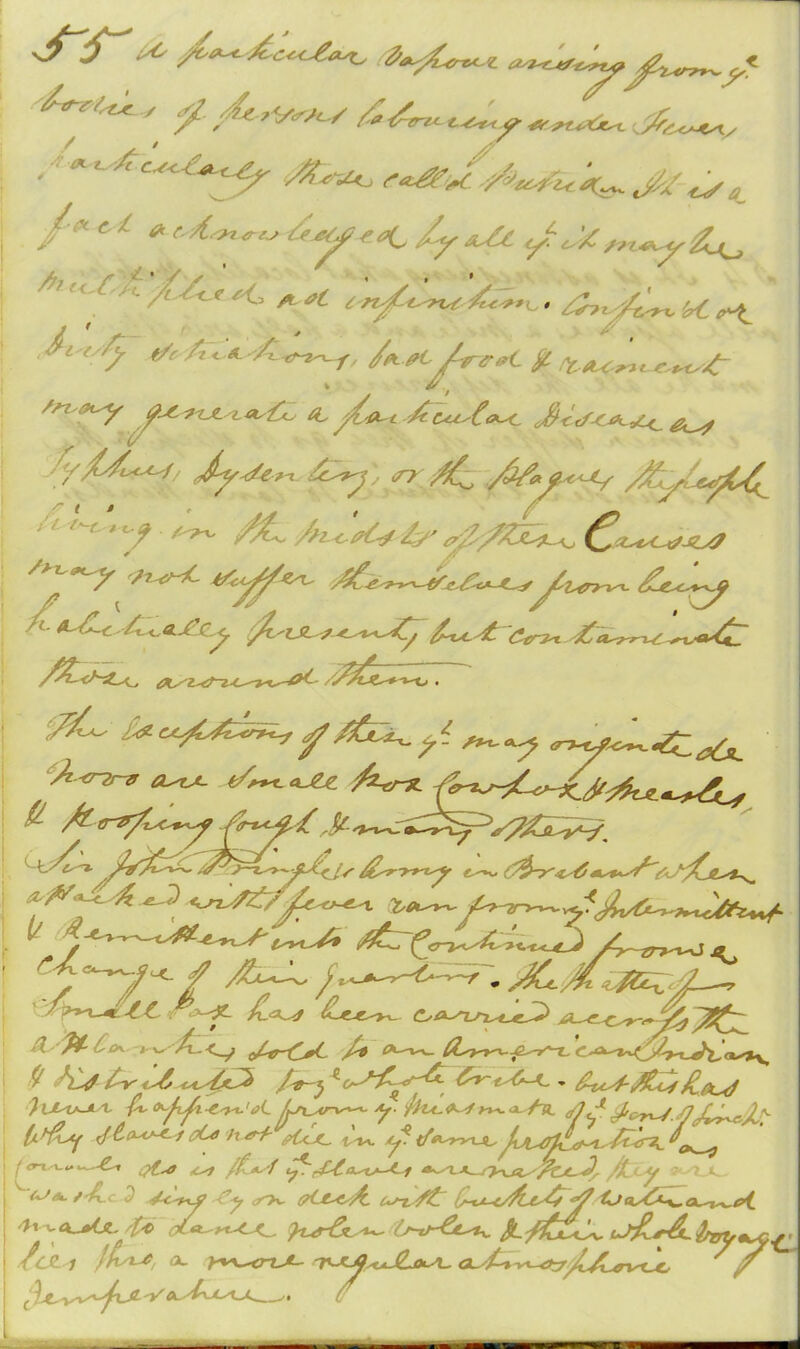 55 A particular Vapour arising from ye
bodies of persons labouring under Fever,
particularly those call'd Putrid. It is a
fact acknowledged by all yt it may be
multiplied ad infinitum. Confin'd or
Dirty situations, bad food & raiment
may generate a particular Disease as
Typhus, Dysentery, or the Plague, the people
living in the midsts of these Causes
may not suffer themselves from being
habitually present, but contaminate
those around them.
The Exceptions of these yt may originate de
novo are Small Pox Cowpox & Measles,
& Hooping Cough, & many others.
Sir John Pringle's Army in Brabant when
attacked with fever ran from ye Intermittent
& Remittent into the Continued from a
change of their quarters. The Matter of
Small Pox has been carried accross the
attlantic, sold to an American Indian
& distributed to ye whole tribe. but this has
never happen'd from ye Miasmata of ye
Why slaves do not die in ye same proportion as
do is that ye Slaves are naked, they are
washed singly on deck with buckets of Water and
made to dance & their whole Voyage
lies thro, a more regular atmosphoric
Temperature.